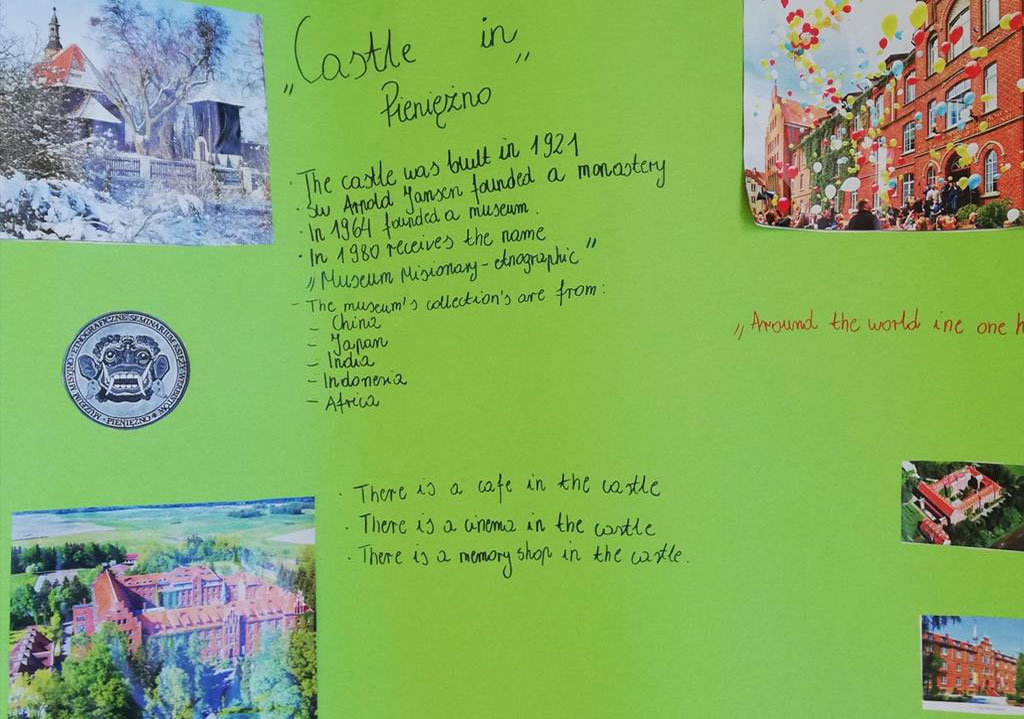 „Castle in”
Pieniężno
· The castle was built in 1921
· Św Arnold Jansen founded a monastery
· In 1964 founded a museum.
· In 1980 receives the name
„Museum Misionary - etnographic”
- The museum's collection's are from:
- China
- Japan
- India
- Indonesia
- Africa
· There is a cafe in the castle
· There is a cinema in the castle
· There is a memory shop in the castle.
„Around the world ine one h
MUZEUM MISYJNO - ETNOGRAFICZNE SEMINARIUM KSIĘŻY WERBISTÓW
· PIENIĘŻNO ·